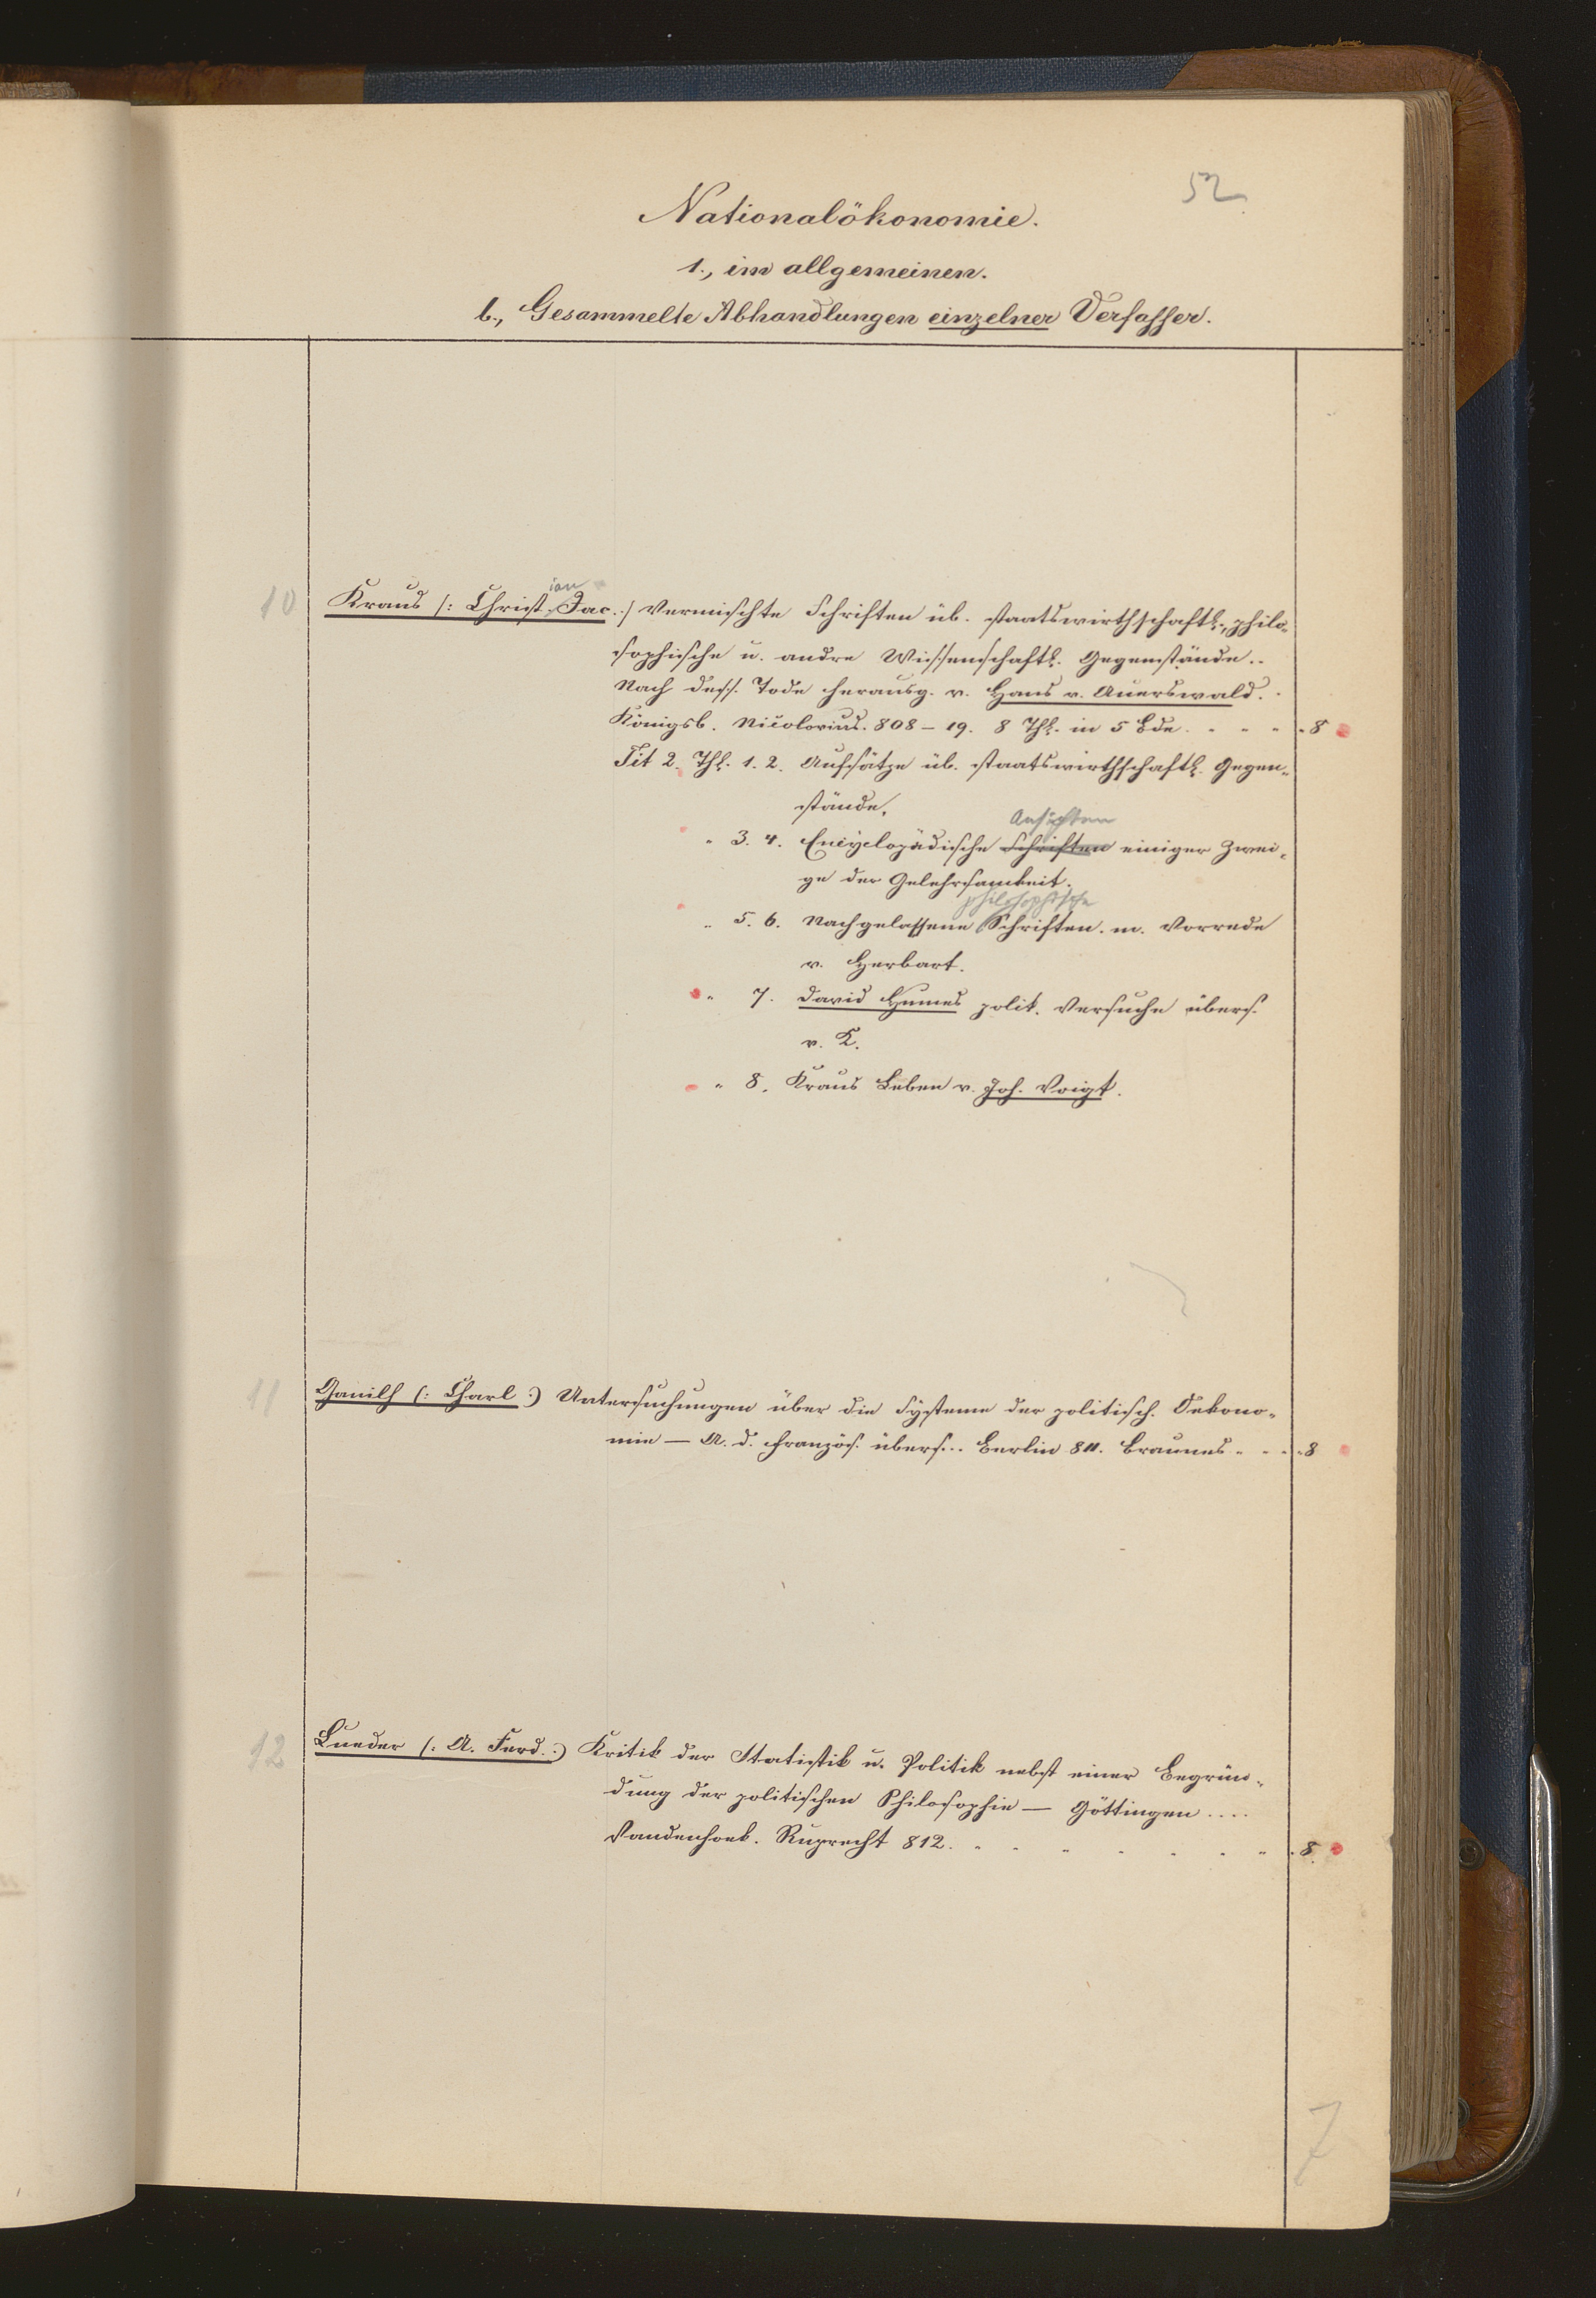 52
Nationalökonomie.
1., im allgemeinen.
b., Gesammelte Abhandlungen einzelner Verfasser.
ian
10 Kraus (: Christ. Jac. :) Vermischte Schriften üb. staatswirthschaftl., philo-
sophische u. andre Wissenschaftl. Gegenstände..
Nach dess. Tode herausg. v. Hans v. Auerswald.
Königsb. Nicolovius. 808 – 19. 8 Thl. in 5 Bde. . . . 8
Tit 2. Thl. 1. 2. Aufsätze üb. staatswirthschaftl. Gegen-
stände.
Ansichten
" 3. 4. Encyclopädische Schriften einiger Zwei-
ge der Gelehrsamkeit.
philosophische
" 5. 6. Nachgelassene Schriften. m. Vorrede
v. Herbart.
" 7. David Humes polit. Versuche übers.
v. K.
" 8. Kraus Leben v. Joh. Voigt.
11 Ganilh (: Charl. :) Untersuchungen über die Systeme der politisch. Oekono-
mie — A. d. Französ. übers... Berlin 811. Braunes . . . 8
12 Lueder (: A. Ferd. :) Kritik der Statistik u. Politik nebst einer Begrün-
dung der politischen Philosophie — Göttingen ....
Vandenhoek. Ruprecht 812. . . . . . . . 8.
7